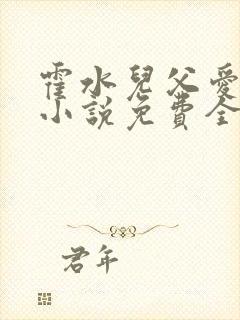 霍水兒父愛
小説免費全
君年